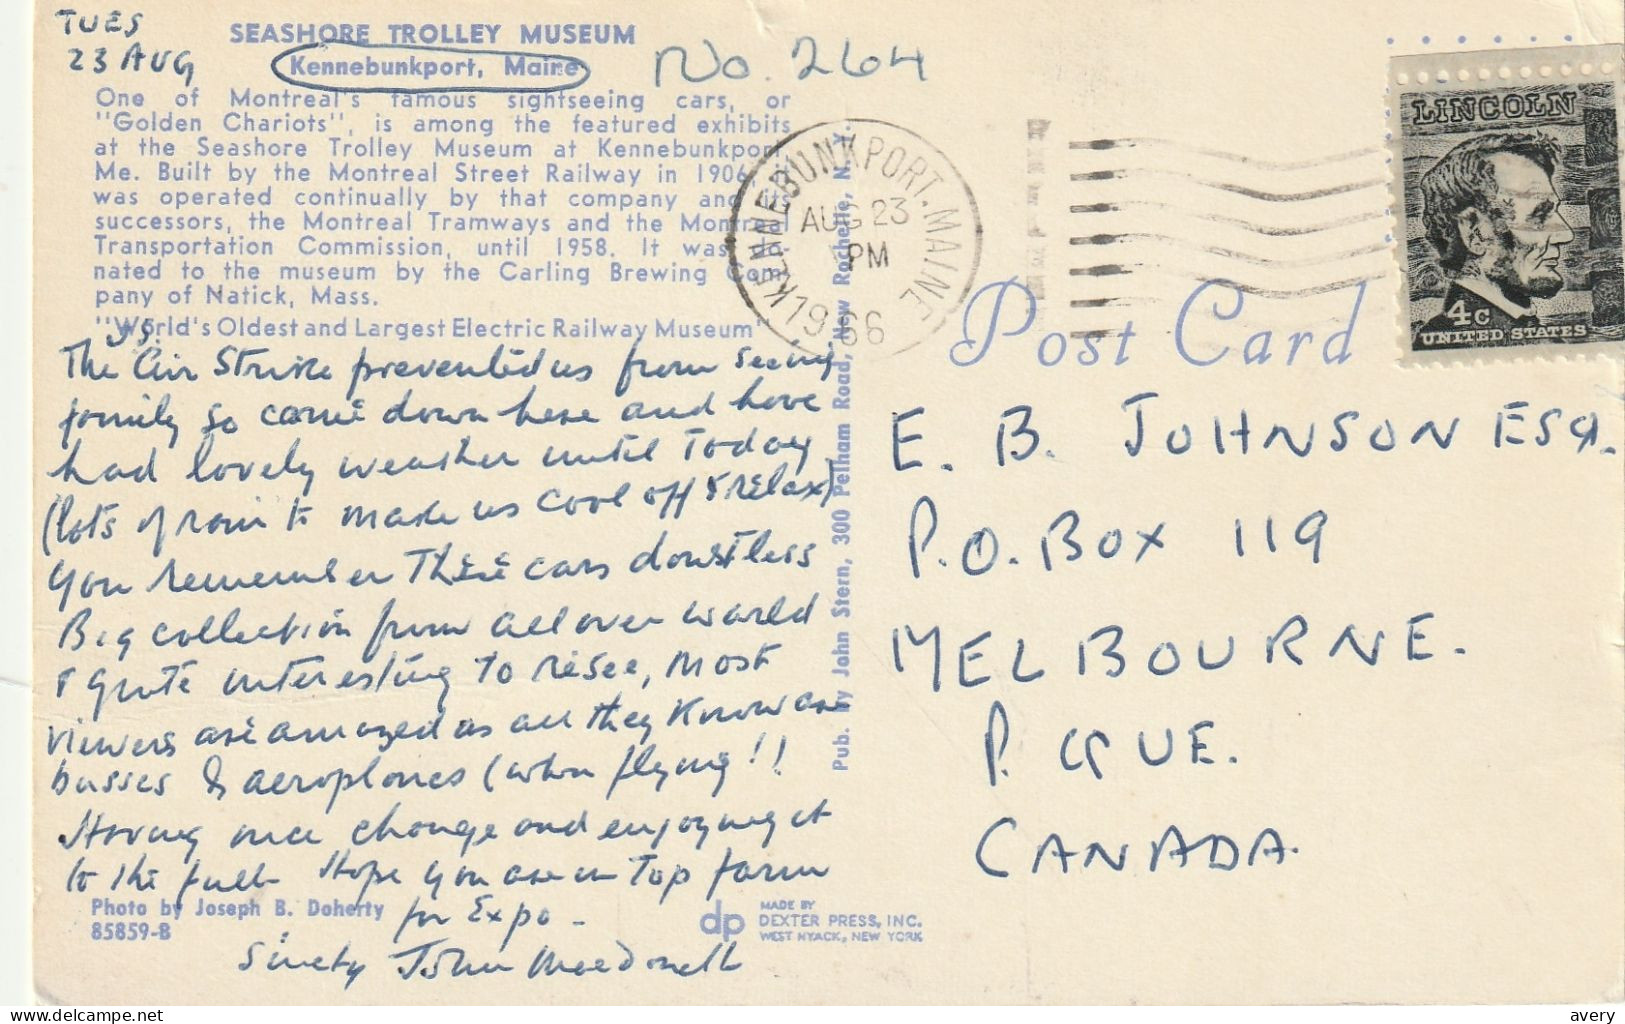 TUES
23 AUG
SEASHORE TROLLEY MUSEUM
Kennebunkport, Maine
No. 264
One of Montreal's famous sightseeing cars, or
"Golden Chariots", is among the featured exhibits
at the Seashore Trolley Museum at Kennebunkport,
Me. Built by the Montreal Street Railway in 1906,
was operated continually by that company and its
successors, the Montreal Tramways and the Montreal
Transportation Commission, until 1958. It was do-
nated to the museum by the Carling Brewing Com-
pany of Natick, Mass.
"World's Oldest and Largest Electric Railway Museum"
The Air Strike prevented us from seeing
family so came down here and have
had lovely weather until Today
(lots of rain to make us cool off & relax)
You remember These cars doubtless
Big collection from all over world
& quite interesting To resee, most
viewers are amazed as all they know are
busses & aeroplanes (when flying!!
Having nice change and enjoying it
to the full Hope you are in Top form
for Expo -
John MacDonell
Photo by Joseph B. Doherty
85859-B
dp
MADE BY
DEXTER PRESS, INC.
WEST NYACK, NEW YORK
Pub. by John Stern, 300 Pelham Road, New Rochelle, N. Y.
KENNEBUNKPORT, MAINE
AUG 23
PM
1966
LINCOLN
4c
UNITED STATES
Post Card
E. B. JOHNSON ESQ.
P.O. BOX 119
MELBOURNE.
P. QUE.
CANADA.
www.delcampe.net
avery